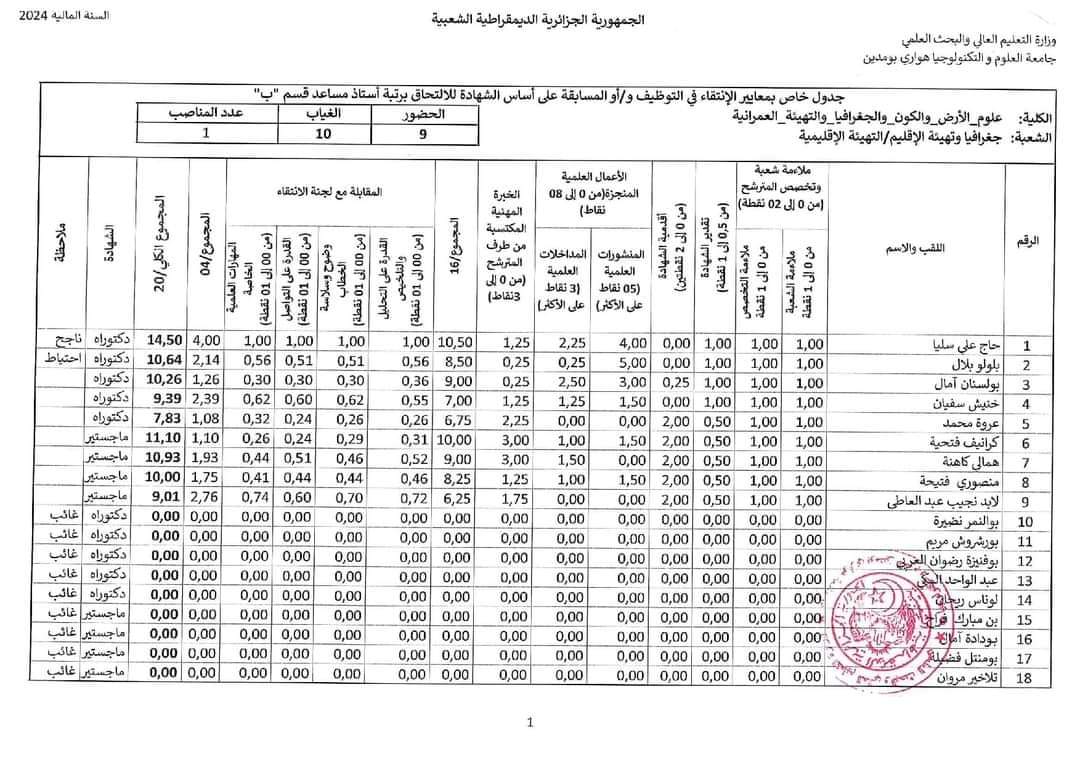 السنة المالية 2024
الجمهورية الجزائرية الديمقراطية الشعبية
وزارة التعليم العالي والبحث العلمي
جامعة العلوم و التكنولوجيا هواري بومدين
جدول خاص بمعايير الإنتقاء في التوظيف و/أو المسابقة على أساس الشهادة للالتحاق برتبة أستاذ مساعد قسم "ب"
الكلية: علوم_الأرض_والكون_والجغرافيا_والتهيئة_العمرانية
الشعبة: جغرافيا وتهيئة الإقليم/التهيئة الإقليمية
الحضور الغياب عدد المناصب
9 10 1
الرقم
اللقب والاسم
ملاءمة شعبة وتخصص المترشح (من 0 إلى 02 نقطة)
ملاءمة الشعبة من 0 إلى 1 نقطة
ملاءمة التخصص من 0 إلى 1 نقطة
تقدير الشهادة (من 0,5 إلى 1 نقطة)
أقدمية الشهادة (من 0 إلى 2 نقطتين)
الأعمال العلمية المنجزة(من 0 إلى 08 نقاط)
المنشورات العلمية (05 نقاط على الأكثر)
المداخلات العلمية (3 نقاط على الأكثر)
الخبرة المهنية المكتسبة من طرف المترشح (من 0 إلى 3نقاط)
المجموع/16
المقابلة مع لجنة الانتقاء
القدرة على التحليل والتلخيص (من 00 إلى 01 نقطة)
وضوح وسلاسة الخطاب (من 00 إلى 01 نقطة)
القدرة على التواصل (من 00 إلى 01 نقطة)
المهارات العلمية الخاصة (من 00 إلى 01 نقطة)
المجموع/04
المجموع الكلي/20
الشهادة
ملاحظة
1 حاج علي سليا 1,00 1,00 1,00 0,00 4,00 2,25 1,25 10,50 1,00 1,00 1,00 1,00 4,00 14,50 دكتوراه ناجح
2 بلولو بلال 1,00 1,00 1,00 0,00 5,00 0,25 0,25 8,50 0,56 0,51 0,51 0,56 2,14 10,64 دكتوراه احتياط
3 بولسنان آمال 1,00 1,00 1,00 0,25 3,00 2,50 0,25 9,00 0,36 0,30 0,30 0,30 1,26 10,26 دكتوراه
4 خنيش سفيان 1,00 1,00 1,00 0,00 1,50 1,25 1,25 7,00 0,55 0,62 0,60 0,62 2,39 9,39 دكتوراه
5 عروة محمد 1,00 1,00 0,50 2,00 0,00 0,00 2,25 6,75 0,26 0,26 0,24 0,32 1,08 7,83 دكتوراه
6 كرانيف فتحية 1,00 1,00 0,50 2,00 1,50 1,00 3,00 10,00 0,31 0,29 0,24 0,26 1,10 11,10 ماجستير
7 همالي كاهنة 1,00 1,00 0,50 2,00 0,00 1,50 3,00 9,00 0,52 0,46 0,51 0,44 1,93 10,93 ماجستير
8 منصوري فتيحة 1,00 1,00 0,50 2,00 1,50 1,00 1,25 8,25 0,46 0,44 0,44 0,41 1,75 10,00 ماجستير
9 لابد نجيب عبد العاطى 1,00 1,00 0,50 2,00 0,00 0,00 1,75 6,25 0,72 0,70 0,60 0,74 2,76 9,01 ماجستير
10 بوالنمر نضيرة 0,00 0,00 0,00 0,00 0,00 0,00 0,00 0,00 0,00 0,00 0,00 0,00 0,00 0,00 دكتوراه غائب
11 بورشروش مريم 0,00 0,00 0,00 0,00 0,00 0,00 0,00 0,00 0,00 0,00 0,00 0,00 0,00 0,00 دكتوراه غائب
12 بوفنيزة رضوان العربي 0,00 0,00 0,00 0,00 0,00 0,00 0,00 0,00 0,00 0,00 0,00 0,00 0,00 0,00 دكتوراه غائب
13 عبد الواحد 0,00 0,00 0,00 0,00 0,00 0,00 0,00 0,00 0,00 0,00 0,00 0,00 0,00 0,00 دكتوراه غائب
14 لوناس ريحان 0,00 0,00 0,00 0,00 0,00 0,00 0,00 0,00 0,00 0,00 0,00 0,00 0,00 0,00 دكتوراه غائب
15 بن مبارك 0,00 0,00 0,00 0,00 0,00 0,00 0,00 0,00 0,00 0,00 0,00 0,00 0,00 0,00 ماجستير غائب
16 بودادة آمال 0,00 0,00 0,00 0,00 0,00 0,00 0,00 0,00 0,00 0,00 0,00 0,00 0,00 0,00 ماجستير غائب
17 بومنتل فضيلة 0,00 0,00 0,00 0,00 0,00 0,00 0,00 0,00 0,00 0,00 0,00 0,00 0,00 0,00 ماجستير غائب
18 تلاخير مروان 0,00 0,00 0,00 0,00 0,00 0,00 0,00 0,00 0,00 0,00 0,00 0,00 0,00 0,00 ماجستير غائب
1